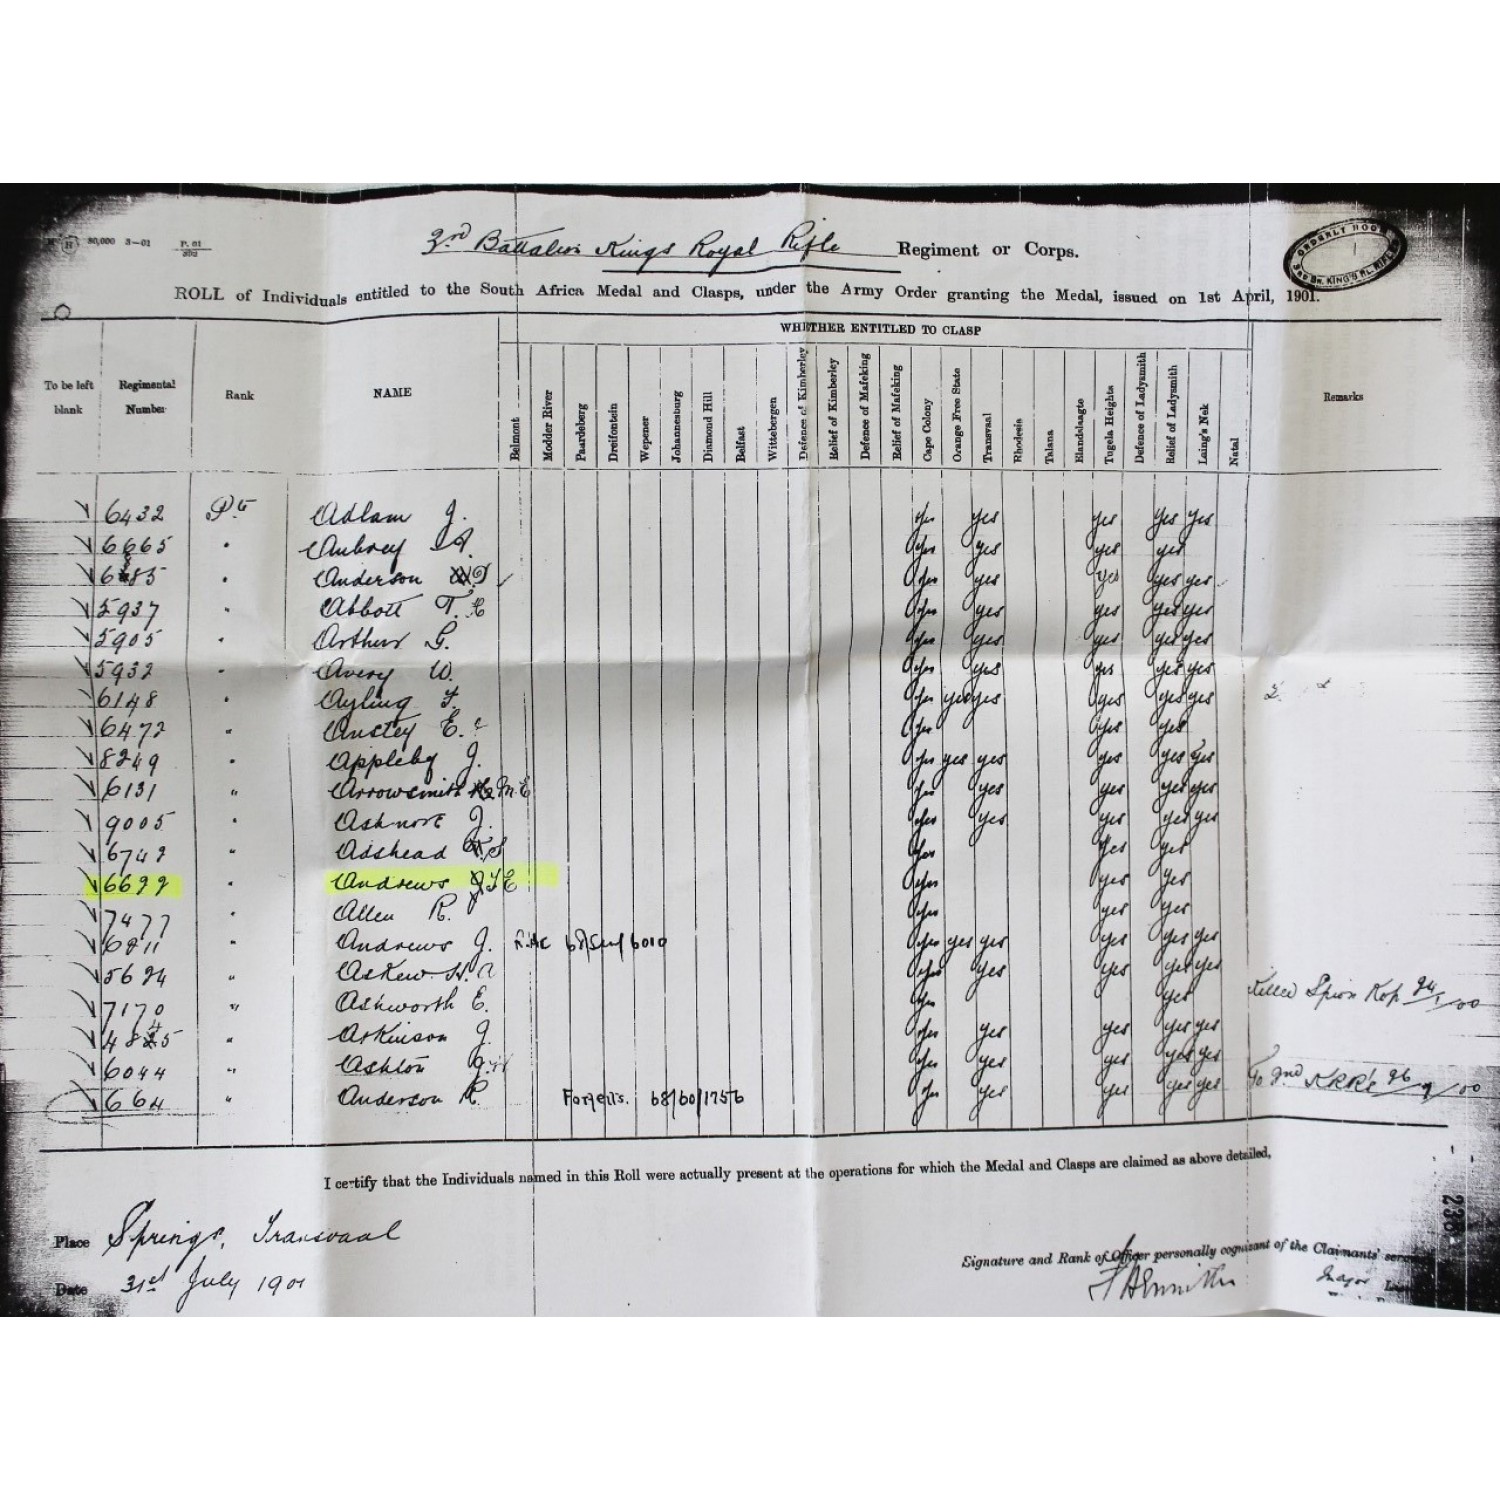 30,000 3-01 P. 01
3rd Battalion Kings Royal Rifle Regiment or Corps.
ORDERLY ROOM
3RD BN. KING'S RL. RIFLES
ROLL of Individuals entitled to the South Africa Medal and Clasps, under the Army Order granting the Medal, issued on 1st April, 1901.
WHETHER ENTITLED TO CLASP
To be left blank Regimental Number Rank NAME Belmont Modder River Paardeberg Dreifontein Wepener Johannesburg Diamond Hill Belfast Wittebergen Defence of Kimberley Relief of Kimberley Defence of Mafeking Relief of Mafeking Cape Colony Orange Free State Transvaal Rhodesia Talana Elandslaagte Tugela Heights Defence of Ladysmith Relief of Ladysmith Laing's Nek Natal Remarks
6432 Pte Adlam J. yes yes yes yes yes
6665 " Aubrey A. yes yes yes yes
" Anderson yes yes yes yes yes
5937 " Abbott T. yes yes yes yes yes
5905 " Arthur G. yes yes yes yes yes
5932 " Avery W. yes yes yes yes yes
6148 " Ayling F. yes yes yes yes yes yes
6472 " Anstey E. yes yes yes
8249 " Appleby J. yes yes yes yes yes yes
6131 " Arrowsmith M.E yes yes yes yes yes
9005 " Ashmore J. yes yes yes yes yes
6742 " Adshead yes yes yes
6699 " Andrews yes yes yes
7477 " Allen R. yes yes yes
6811 " Andrews J. yes yes yes yes yes yes
5694 " Askew H. yes yes yes yes yes
7170 " Ashworth E. yes yes Killed Spion Kop 24/1/00
" Atkinson J. yes yes yes yes yes
6044 " Ashton yes yes yes yes yes
664 " Anderson R. Forfeits. 68/60/1756 yes yes yes yes yes To 2nd KRR's 26/9/00
I certify that the Individuals named in this Roll were actually present at the operations for which the Medal and Clasps are claimed as above detailed.
Place Springs, Transvaal
Signature and Rank of Officer personally cognizant of the Claimants'
Date 31st July 1901
Major
236